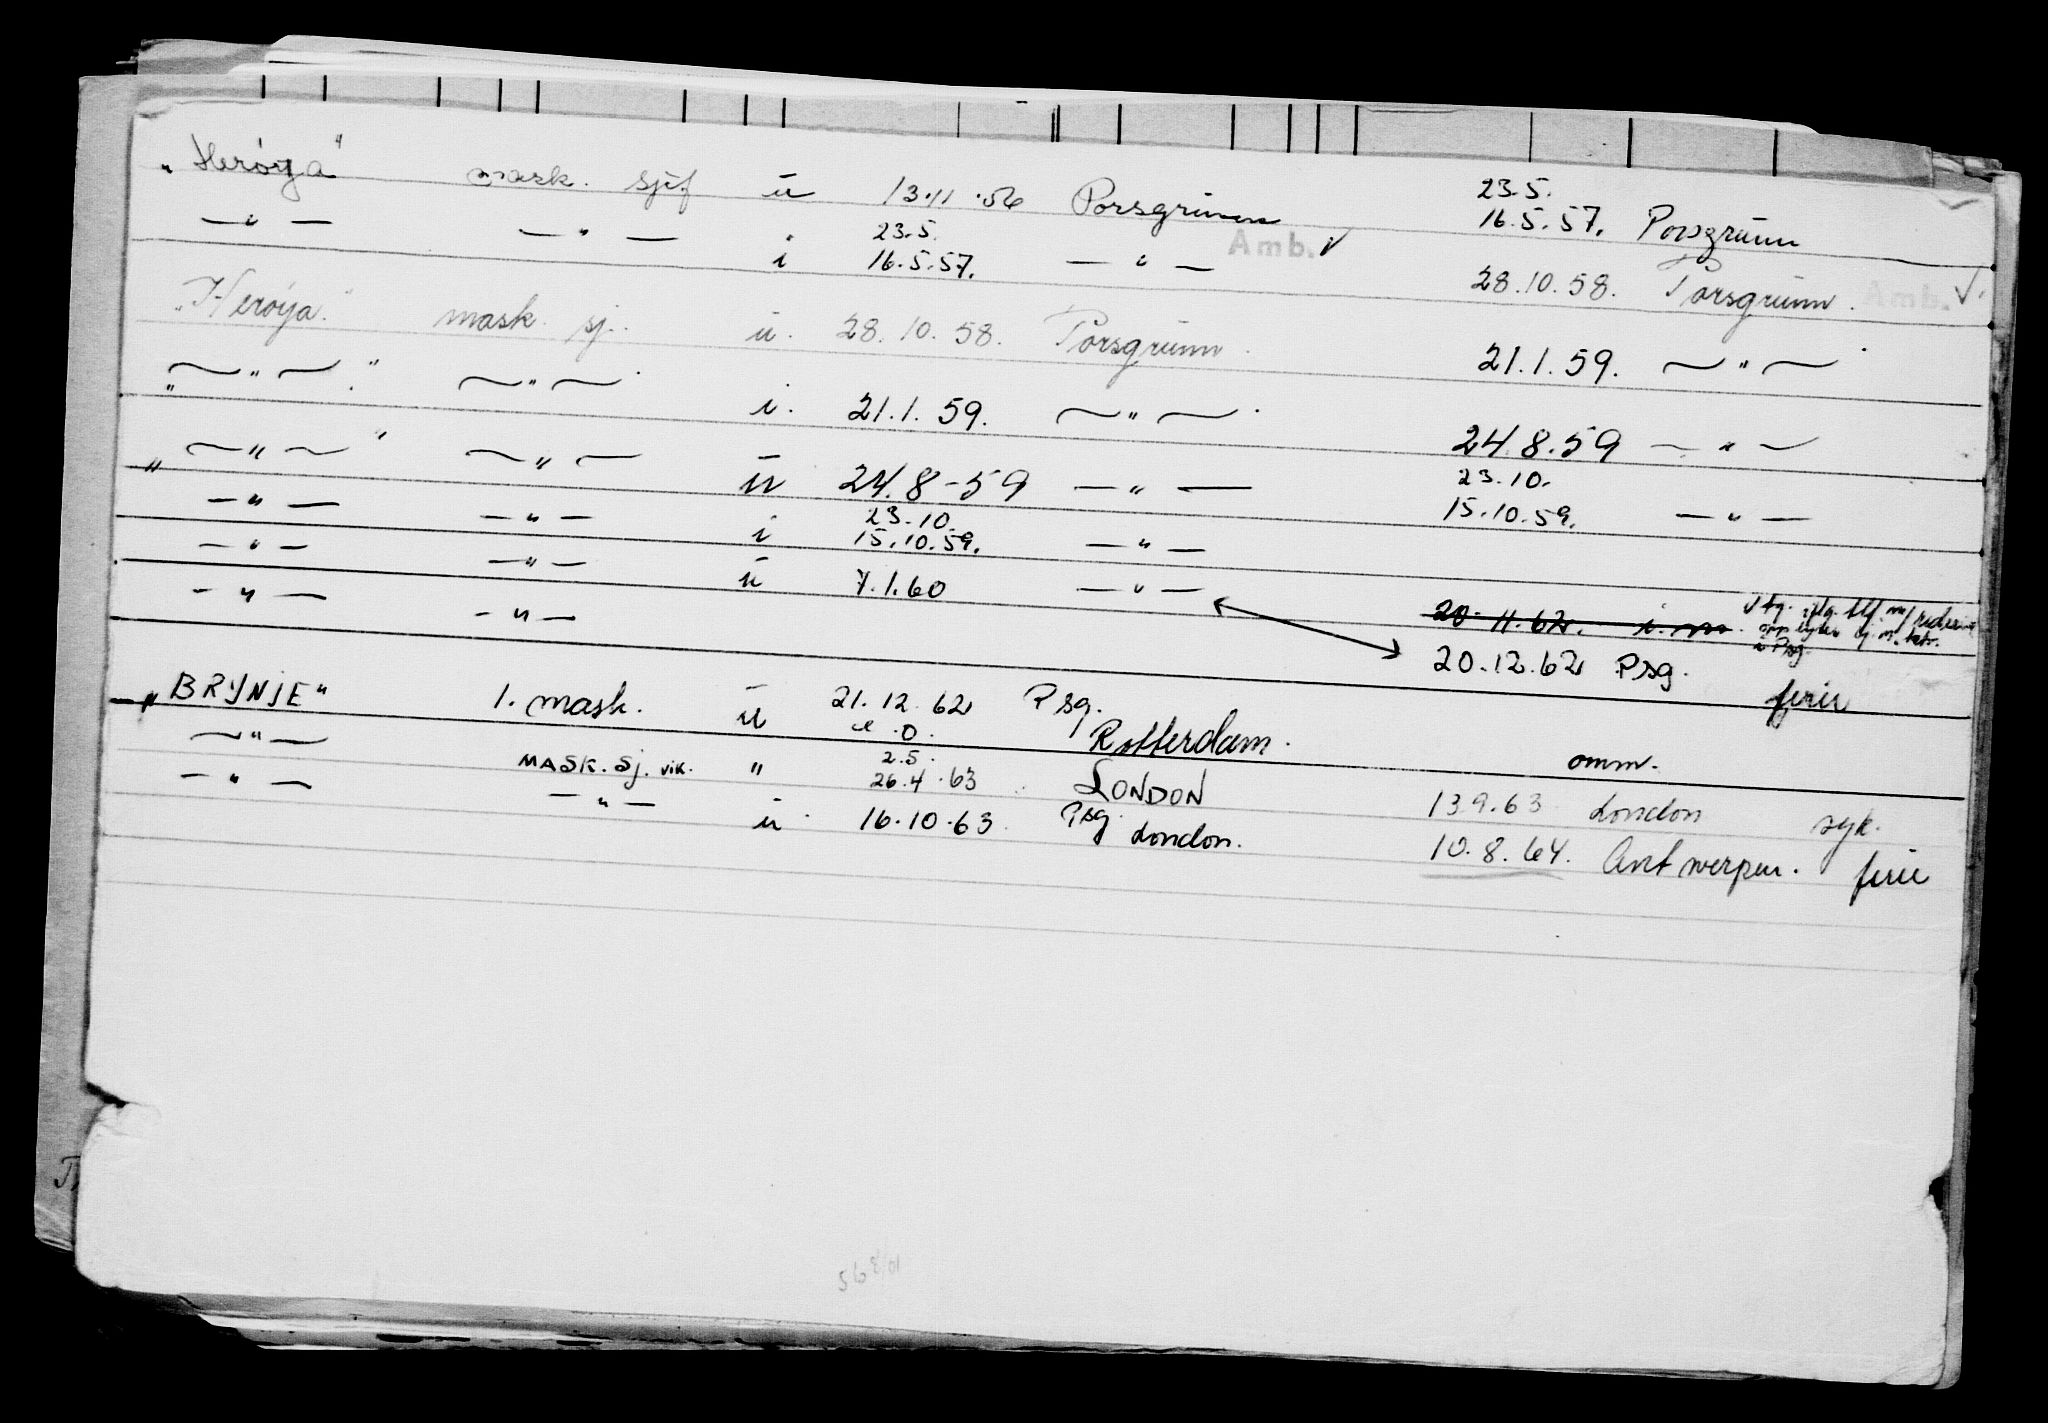 „Herøya" mask. sjef u 13.11.56 Porsgrunn 23.5.
16.5.57. Porsgrunn
— " — — " — i 23.5.
16.5.57. — " — Amb. ✓ 28.10.58. Porsgrunn. Amb. ✓.
„Herøya." mask. sj. u. 28.10.58. Porsgrunn. 21.1.59. — " —
„ — " — . " — " — i. 21.1.59. — " — . 24.8.59 — " —
„ — " — " — " — u 24.8-59 — " — 23.10.
15.10.59. — " —
— " — — " — i 23.10.
15.10.59. — " —
— " — — " — u 7.1.60 — " — 20.11.62.
— " — — " — 20.12.62 Psg. ferie
„BRYNJE" 1. mask. u 21.12.62 Psg.
— " — Rotterdam. omm.
MASK. Sj. vik. " 2.5.
26.4.63 LONDON 13.9.63 London syk.
— " — — " — u 16.10.63 Psg. London. 10.8.64. Antwerpen. ferie